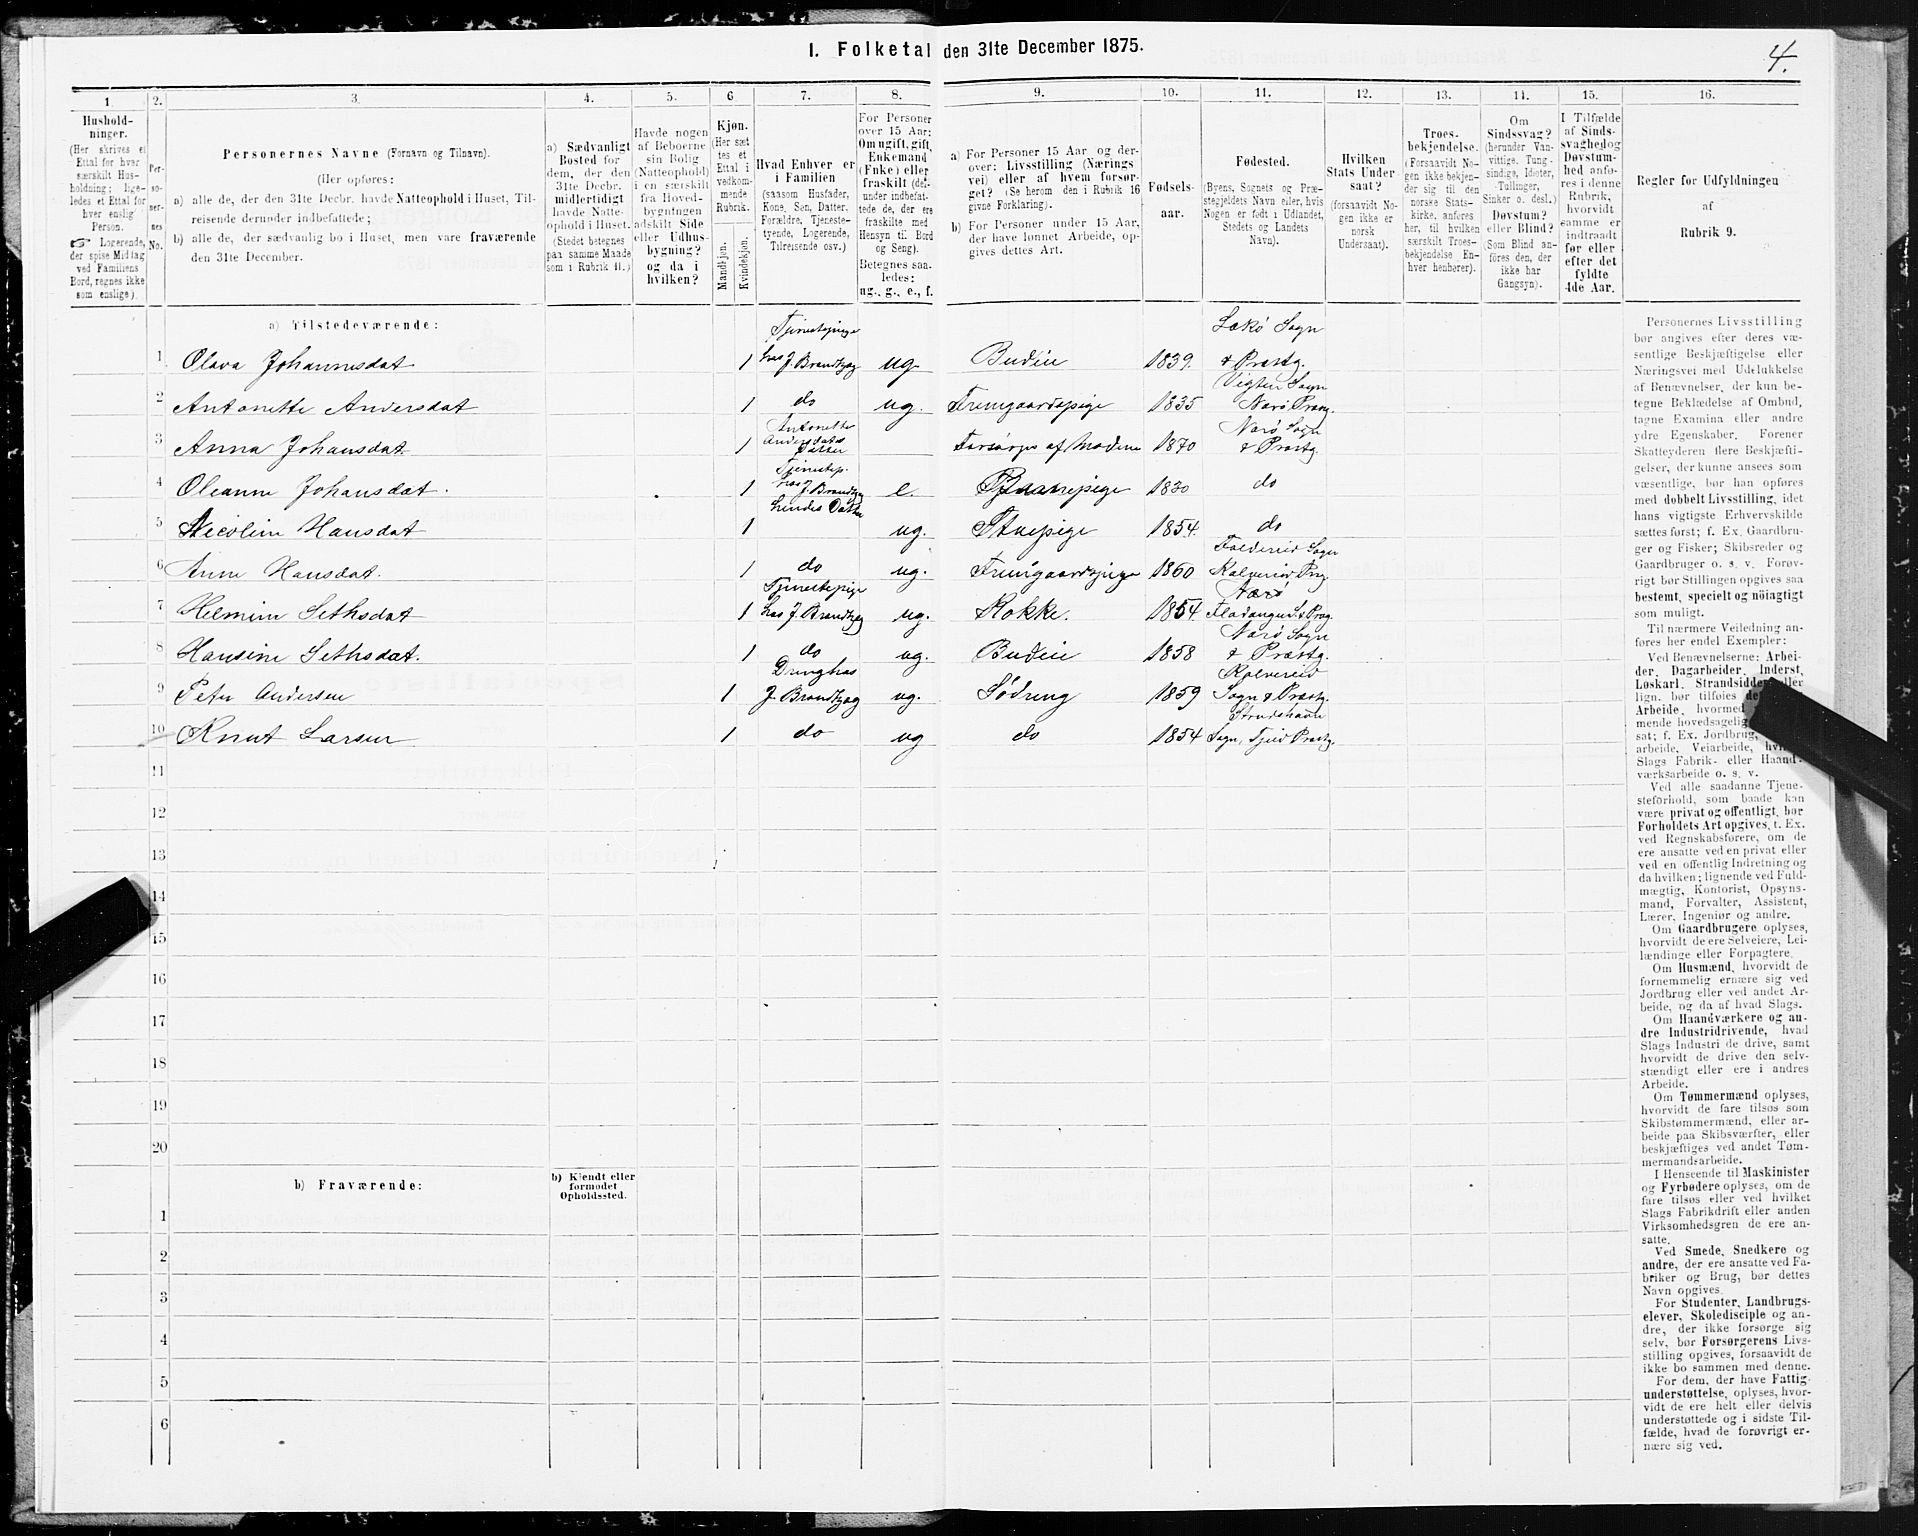 I. Folketal den 31te December 1875.
4.
1. 2. 3. 4. 5. 6 7. 8. 9. 10. 11. 12. 13. 14. 15. 16.
Hushold-
ninger.
(Her skrives et
Ettal for hver
særskilt Hus-
holdning; lige-
ledes et Ettal for
hver enslig
Person.
Logerende,
der spise Middag
ved Familiens
Bord, regnes ikke
som enslige).
Per-
so-
ner-
nes
No.
Personernes Navne (Fornavn og Tilnavn).
(Her opføres:
a) alle de, der den 31te Decbr. havde Natteophold i Huset, Til-
reisende derunder indbefattede;
b) alle de, der sædvanlig bo i Huset, men vare fraværende
den 31te December.
a) Sædvanligt
Bosted for
dem, der den
31te Decbr.
midlertidigt
havde Natte-
ophold i Huset.
(Stedet betegnes
paa samme Maade
som i Rubrik 11.)
Havde nogen
af Beboerne
sin Bolig
(Natteophold)
i en særskilt
fra Hoved-
bygningen
adskilt Side
eller Udhus-
bygning?
og da i
hvilken?
Kjøn.
(Her sæt
tes et
Ettal i
vedkom-
mende
Rubrik.
Mandkjøn.
Kvindekjøn.
Hvad Enhver er
i Familien
(saasom Husfader,
Kone, Søn, Datter,
Forældre, Tjeneste-
tyende, Logerende,
Tilreisende osv.)
For Personer
over 15 Aar:
Om ugift, gift,
Enkemand
(Enke) eller
fraskilt (der-
under indbefat-
tede de, der ere
fraskilte med
Hensyn til Bord
og Seng).
Betegnes saa-
ledes:
ug., g., e., f.
a) For Personer 15 Aar og der-
over: Livsstilling (Nærings
vei) eller af hvem forsør-
get? (Se herom den i Rubrik 16
givne Forklaring).
b) For Personer under 15 Aar,
der have lønnet Arbeide, op-
gives dettes Art.
Fødsels-
aar.
Fødested.
(Byens, Sognets og Præ-
stegjeldets Navn eller, hvis
Nogen er født i Udlandet,
Stedets og Landets
Navn).
Hvilken
Stats Under
saat?
(forsaavidt No-
gen ikke er
norsk
Undersaat).
Troes-
bekjendelse.
(Forsaavidt No-
gen ikke bekjen-
der sig til den
norske Stats-
kirke, anføres
her, til hvilken
særskilt Troes-
bekjendelse En-
hver henhører).
Om
Sindssvag?
(herunder Van-
vittige, Tung-
sindige, Idioter,
Tullinger,
Sinker o. desl.)
Døvstum?
eller Blind?
(Som Blind an-
føres den, der
ikke har
Gangsyn).
I Tilfælde
af Sinds-
svaghed og
Døvstum-
hed anfø-
res i denne
Rubrik,
hvorvidt
samme er
indtraadt
før eller
efter det
fyldte
4de Aar.
Regler for Udfyldningen
af
Rubrik 9.
a) Tilstedeværende:
1 Olava Johannesdat 1 Tjenestepige hos J. Brandtzæg ug. Budeie 1839. Lekø Sogn & Præstg.
2 Antonette Andersdat 1 do ug. Fruingaardspige 1835 Vigten Sogn Nærø Præstg.
3 Anna Johansdat 1 Antonette Andersdats Datter Forsørges af Moderen 1870 Nærø Sogn & Præstg.
4 Oleanne Johansdat. 1 Tjenestep. hos J. Brandtzæg e. 1830 do
5 Nicoline Hansdat 1 hendes Datter ug. Stuepige 1854. do
6 Anne Hansdat. 1 do ug. Fruingaardspige 1860 Foldereid Sogn Kolvereid Prg.
7 Helmine Sethsdat 1 Tjenestepige hos J. Brandtzæg ug. Kokke. 1854 Nærø
8 Hansine Sethsdat. 1 do ug. Budeie 1858 Nærø Sogn & Præstg.
9 Peter Andersen 1 Dreng hos J. Brandtzæg ug. Lødreng 1859 Kolvereid Sogn & Præstg.
10 Knut Larsen 1 do ug do 1854 Sogn, Præstg.
11
12
13
14
15
16
17
18
19
20
b) Fraværende:
b) Kjendt eller
formodet
Opholdssted.
1
2
3
4
5
6
Personernes Livsstilling
bør angives efter deres væ-
sentlige Beskjæftigelse eller
Næringsvei med Udelukkelse
af Benævnelser, der kun be-
tegne Beklædelse af Ombud,
tagne Examina eller andre
ydre Egenskaber. Forener
Skatteyderen flere Beskjæfti-
gelser, der kunne ansees som
væsentlige, bør han opføres
med dobbelt Livsstilling, idet
hans vigtigste Erhvervskilde
sættes først; f. Ex. Gaardbru-
ger og Fisker; Skibsreder og
Gaardbruger o. s. v. Forøv-
rigt bør Stillingen opgives saa
bestemt, specielt og nöiagtigt
som muligt.
Til nærmere Veiledning an-
føres her endel Exempler:
Ved Benævnelserne: Arbei-
der, Dagarbeider, Inderst,
Løskarl, Strandsidder eller
lign. bør tilføies
Arbeide, hvormed
mende hovedsagelig
sat; f. Ex. Jordbrug,
arbeide, Veiarbeide,
Slags Fabrik- eller Haand-
værksarbeide o. s. v.
Ved alle saadanne Tjene-
steforhold, som baade kan
være privat og offentligt, bør
Forholdets Art opgives, t. Ex.
ved Regnskabsførere, om de
ere ansatte ved en privat eller
ved en offentlig Indretning og
da hvilken; lignende ved Fuld-
mægtig, Kontorist, Opsyns-
mand, Forvalter, Assistent,
Lærer, Ingeniør og andre.
Om Gaardbrugere oplyses,
hvorvidt de ere Selveiere, Lei-
lændinge eller Forpagtere.
Om Husmænd, hvorvidt de
fornemmelig ernære sig ved
Jordbrug eller ved andet Ar-
beide, og da af hvad Slags.
Om Haandværkere og an-
dre Industridrivende, hvad
Slags Industri de drive, samt
hvorvidt de drive den selv-
stændigt eller ere i andres
Arbeide.
Om Tømmermænd oplyses,
hvorvidt de fare tilsøs som
Skibstømmermænd, eller ar-
beide paa Skibsværfter, eller
beskjæftiges ved andet Tøm-
mermandsarbeide.
I Henseende til Maskinister
og Fyrbødere oplyses, om de
fare tilsøs eller ved hvilket
Slags Fabrikdrift eller anden
Virksomhedsgren de ere an-
satte.
Ved Smede, Snedkere og
andre, der ere ansatte ved Fa-
briker og Brug, bør dettes
Navn opgives.
For Studenter, Landbrugs-
elever, Skoledisciple og an-
dre, der ikke forsørge sig
selv, bør Forsørgerens Livs-
stilling opgives, forsaavidt de
ikke bo sammen med denne.
For dem, der have Fattig-
understøttelse, oplyses, hvor-
vidt de ere helt eller delvis
understøttede og i sidste Til-
fælde, hvad de forøvrigt er-
nære sig ved.